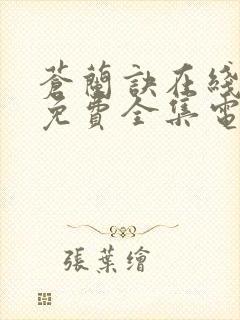 蒼蘭訣在綫
免費全集電
張葉繪